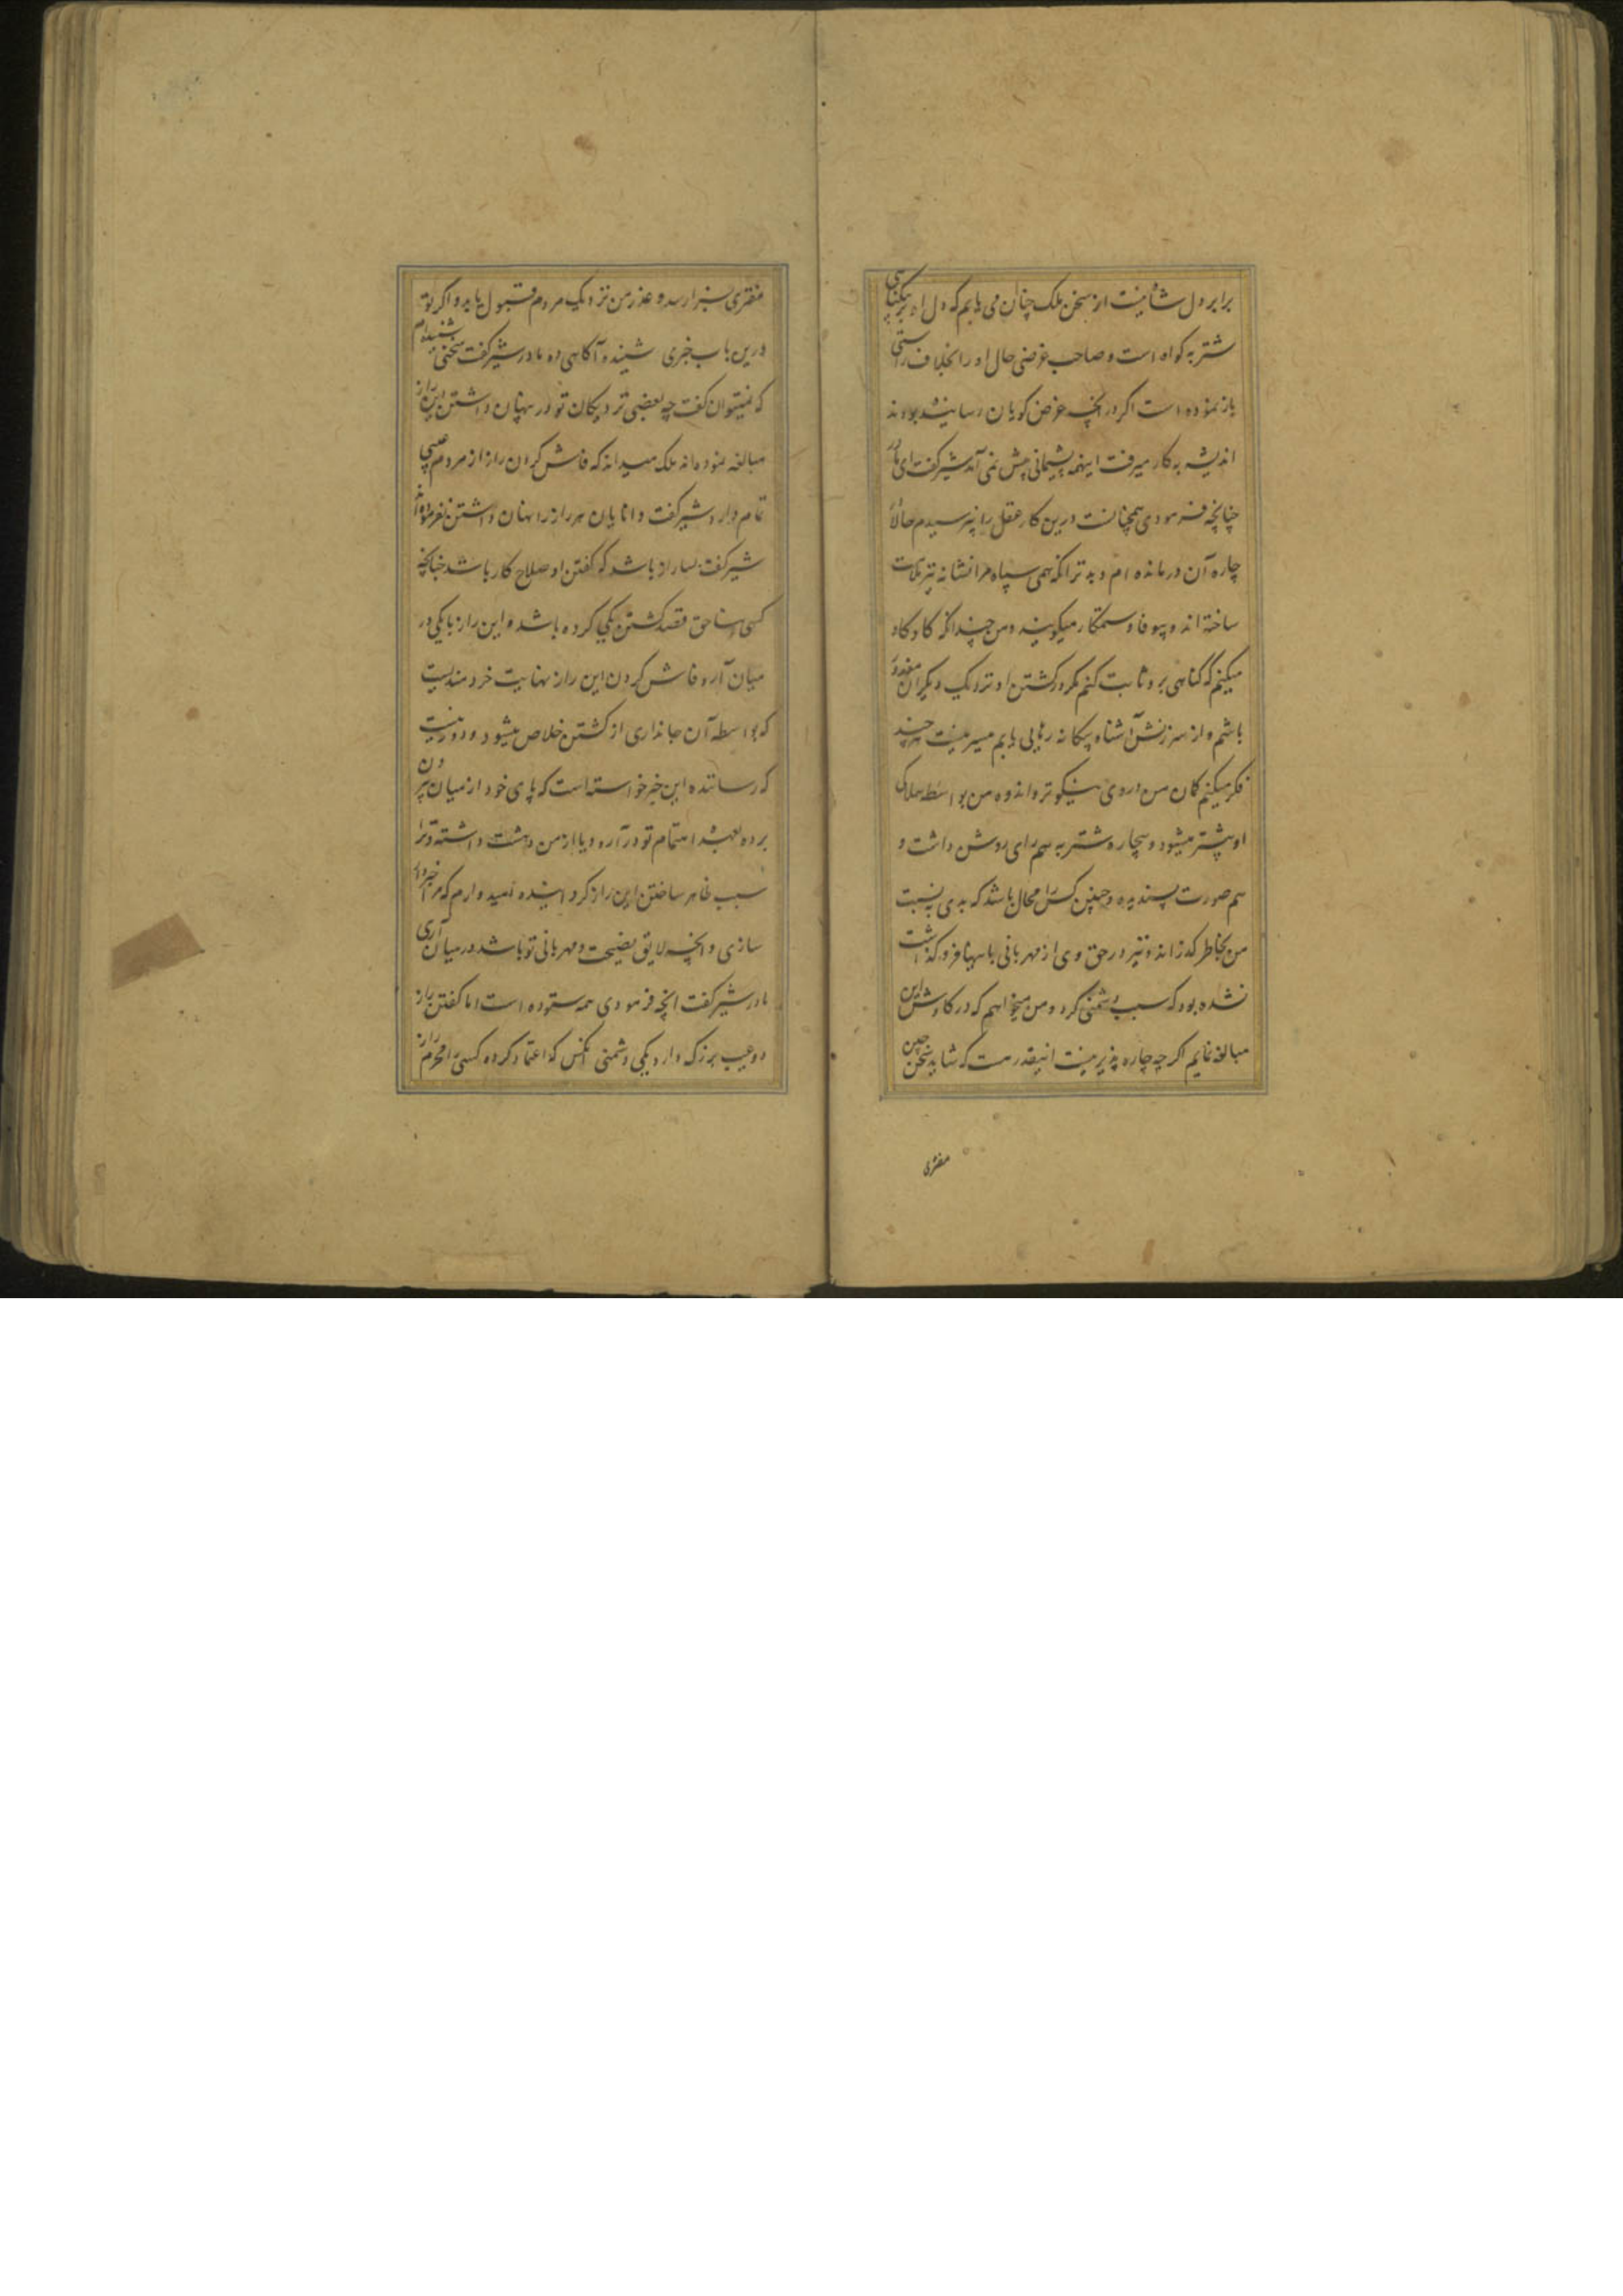 برابر دل شاهیست از سخن ملک چنان می یابم که دل او بر بیگناهی
شتربه کواه است و صاحب غرضی حال او را بخلاف راستی
باز نموده است اکر در انچه غرض کویان رسانیده بودند
اندیشه بکار میرفت اینهمه پشیمانی پیش نمی آمد شیر کفت ای مادر
چنانچه فرمودی همچنانست درین کار عقل را نپرسیدم حالا از
چاره آن درمانده ام و بدتر انکه همی سپاه مرا نشانه تیر ملامت
ساخته اند و بیوفا و ستمکار میکویند و من چندانکه کاوکاو
میکنم که کناهی برو ثابت کنم مکر در کشتن او نزدیک دیکران معذور
باشم و از سرزنش آشنا و بیکانه رهایی یابم میسر نیست هرچند
فکر میکنم کمان من در وی نیکوتر و اندوه من بواسطه هلاکی
او بیشتر میشود و بیچاره شتربه هم رای روشن داشت و
هم صورت پسندیده و چنین کس را محال باشد که بدی به نسبت
من بخاطر کذراند و نیز در حق وی از مهربانی ها فروکذاشت
نشده بود که سبب دشمنی کردد و من میخواهم که در کاوش این
مبالغه نمایم اکرچه چاره پذیر نیست اینقدر هست که شاید سخن چین
مفتری
مفتری بسزا رسد و عذر من نزدیک مردم قبول یابد و اکر تو
درین باب خبری شنیده آکاهی ده مادر شیر کفت سخنی شنیده ام
که نمیتوان کفت چه بعضی نزدیکان تو در پنهان داشتن این راز
مبالغه نموده اند ملک میداند که فاش کردن راز از مردم عیبی
تمام دارد شیر کفت دانایان هر راز را نهان داشتن نفرموده اند
شیر کفت بسا راز باشد که کفتن او صلاح کار باشد چنانچه
کسی بناحق قصد کشتن یکی کرده باشد و این راز با یکی در
میان آرد فاش کردن این راز نهایت خردمندیست
که بواسطه آن جانداری از کشتن خلاص میشود و دور نیست
که رساننده این خبر خواسته است که پای خود از میان بیرون
برده بعهد اهتمام تو درآرد و یا از من دهشت داشته و ترا
سبب ظاهر ساختن این راز کردانیده امیدوارم که مرا خبردار
سازی و انچه لایق نصیحت و مهربانی تو باشد در میان آری
مادر شیر کفت انچه فرمودی همه ستوده است اما کفتن راز
دو عیب بزرک دارد یکی دشمنی انکس که اعتماد کرده کسی را محرم راز